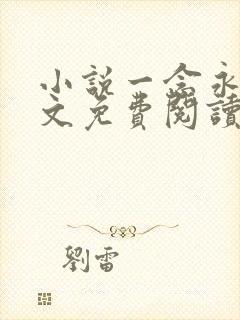 小說一念永
文免費閱讀
劉雷